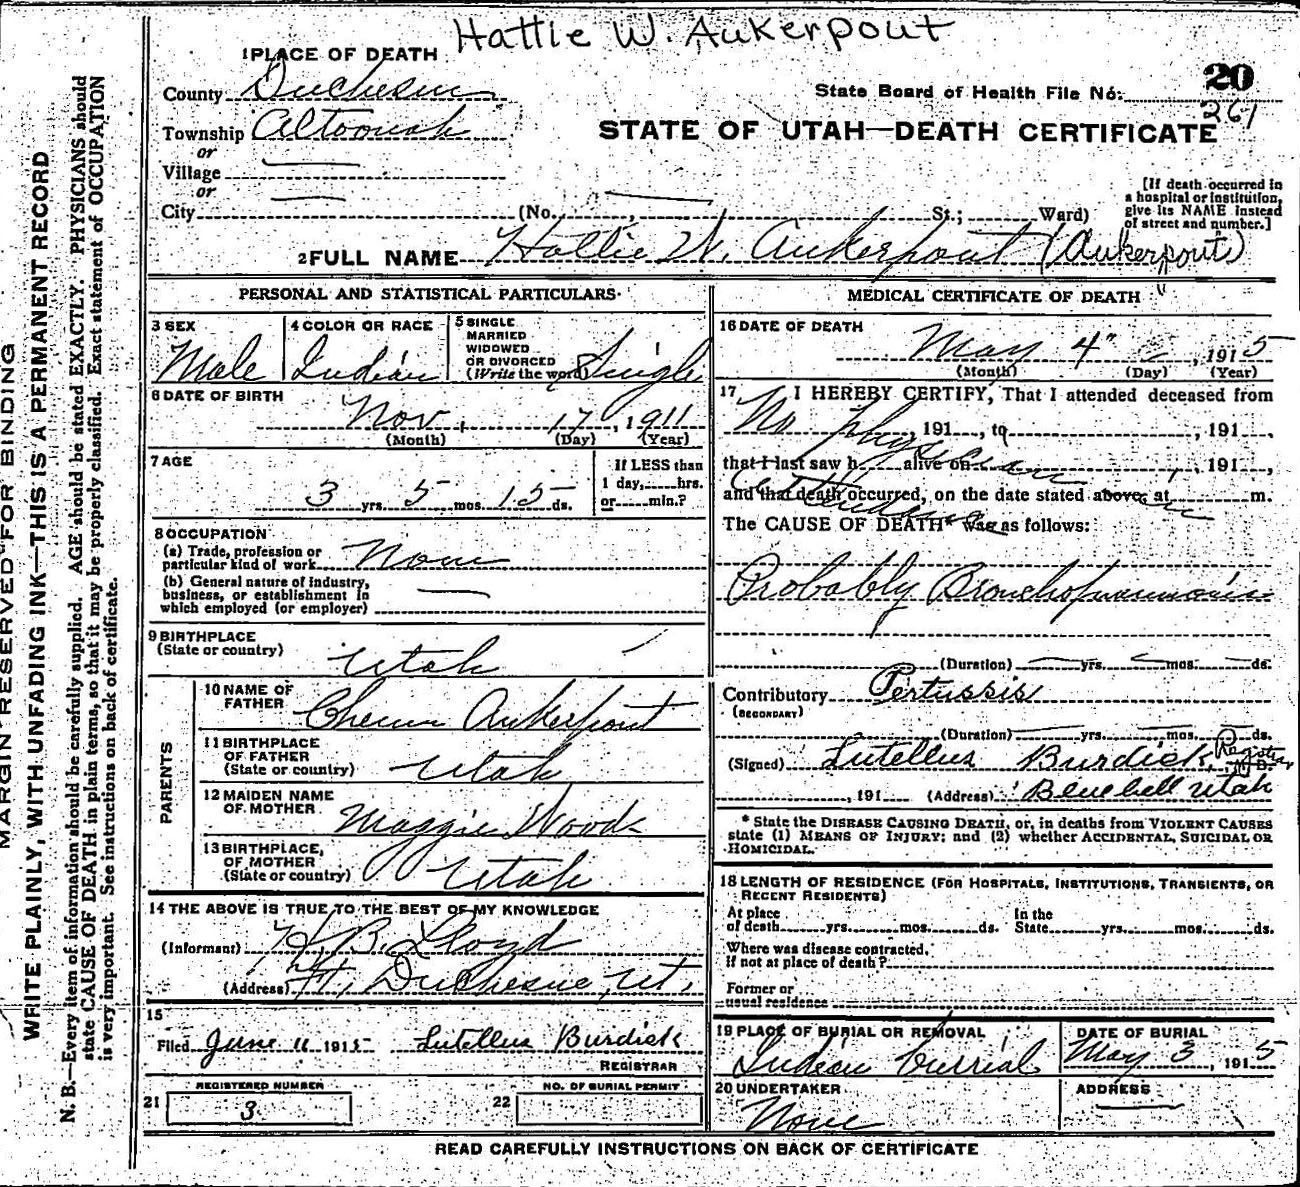 Hattie W. Aukerpout
1 PLACE OF DEATH
County Duchesne
Township Altoonah
or
Village
or
City (No. , St.; Ward)
State Board of Health File No. 20
261
STATE OF UTAH—DEATH CERTIFICATE
[If death occurred in
a hospital or institution,
give its NAME instead
of street and number.]
2 FULL NAME Hattie W. Aukerpout (Aukerpout)
PERSONAL AND STATISTICAL PARTICULARS
3 SEX
Male
4 COLOR OR RACE
Indian
5 SINGLE
MARRIED
WIDOWED
OR DIVORCED
(Write the word) Single
6 DATE OF BIRTH
Nov. 17, 1911
(Month) (Day) (Year)
7 AGE
3 yrs. 5 mos. 15 ds.
If LESS than
1 day, hrs.
or min.?
8 OCCUPATION
(a) Trade, profession or
particular kind of work None
(b) General nature of industry,
business, or establishment in
which employed (or employer)
9 BIRTHPLACE
(State or country) Utah
PARENTS
10 NAME OF
FATHER Aukerpout
11 BIRTHPLACE
OF FATHER
(State or country) Utah
12 MAIDEN NAME
OF MOTHER Maggie Wood
13 BIRTHPLACE,
OF MOTHER
(State or country) Utah
14 THE ABOVE IS TRUE TO THE BEST OF MY KNOWLEDGE
(Informant) H. B. Lloyd
(Address) Ft. Duchesne, Ut.
15
Filed June 11 1915 Lutellus Burdick
REGISTRAR
21 REGISTERED NUMBER
3
22 NO. OF BURIAL PERMIT
MEDICAL CERTIFICATE OF DEATH
16 DATE OF DEATH
May 4" , 1915
(Month) (Day) (Year)
17 I HEREBY CERTIFY, That I attended deceased from
No physician attendance
, 191 , to , 191 ,
that I last saw h alive on , 191 ,
and that death occurred, on the date stated above, at m.
The CAUSE OF DEATH* was as follows:
Probably Bronchopneumonia
(Duration) yrs. mos. ds.
Contributory Pertussis
(SECONDARY)
(Duration) yrs. mos. ds.
(Signed) Lutellus Burdick, Registrar M. D.
, 191 (Address) Bluebell Utah
* State the DISEASE CAUSING DEATH, or, in deaths from VIOLENT CAUSES
state (1) MEANS OF INJURY; and (2) whether ACCIDENTAL, SUICIDAL OR
HOMICIDAL.
18 LENGTH OF RESIDENCE (FOR HOSPITALS, INSTITUTIONS, TRANSIENTS, OR
RECENT RESIDENTS)
At place
of death yrs. mos. ds.
In the
State yrs. mos. ds.
Where was disease contracted,
if not at place of death?
Former or
usual residence
19 PLACE OF BURIAL OR REMOVAL
Indian burrial
DATE OF BURIAL
May 3, 1915
20 UNDERTAKER
None
ADDRESS
READ CAREFULLY INSTRUCTIONS ON BACK OF CERTIFICATE
MARGIN RESERVED FOR BINDING
WRITE PLAINLY, WITH UNFADING INK—THIS IS A PERMANENT RECORD
N. B.—Every item of information should be carefully supplied. AGE should be stated EXACTLY. PHYSICIANS should
state CAUSE OF DEATH in plain terms, so that it may be properly classified. Exact statement of OCCUPATION
is very important. See instructions on back of certificate.